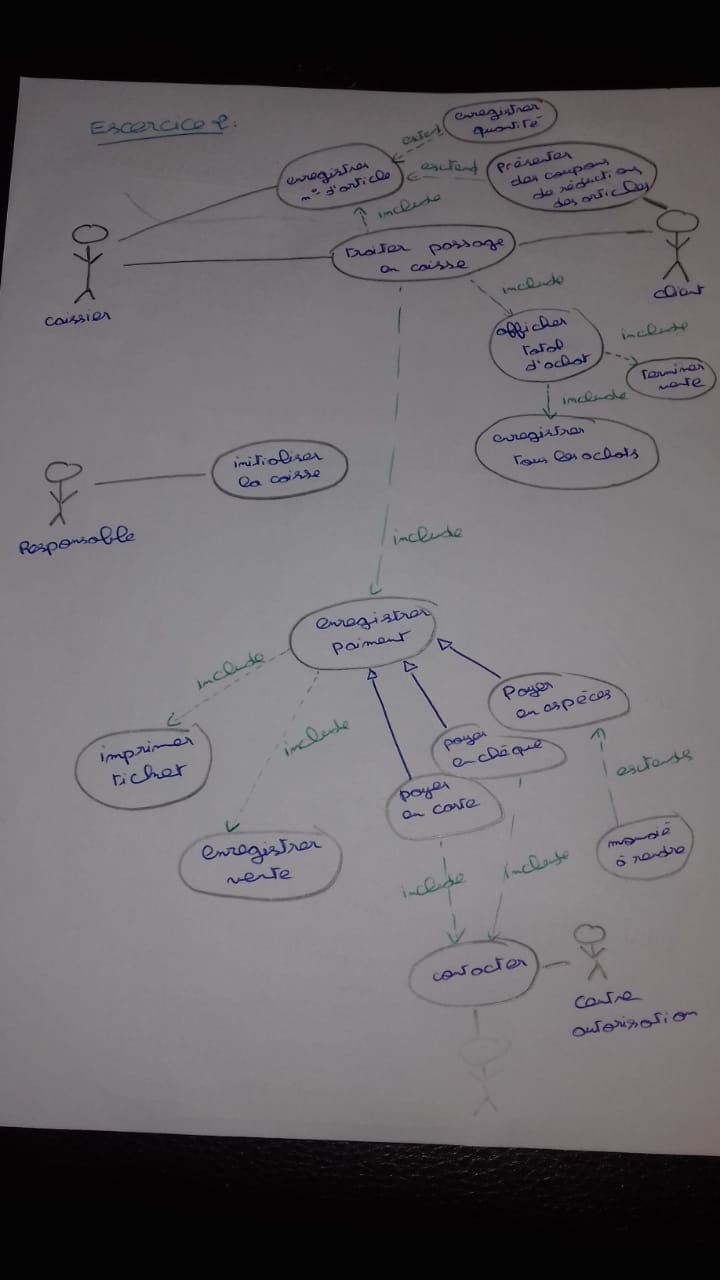 Escercice 2:
enregistrer
quantité
extend
enregistrer
n° d'article
esctend
Présenter
des coupons
de réductions
des articles
include
traiter passage
en caisse
caissier
client
include
afficher
total
d'achat
include
Terminer
vente
include
enregistrer
tous les achats
initialiser
la caisse
Responsable
include
enregistrer
paiment
include
include
imprimer
ticket
enregistrer
vente
Payer
en espéces
payer
en chéque
payer
en carte
esctends
monaié
à rendre
include
include
contacter
Centre
autorisation